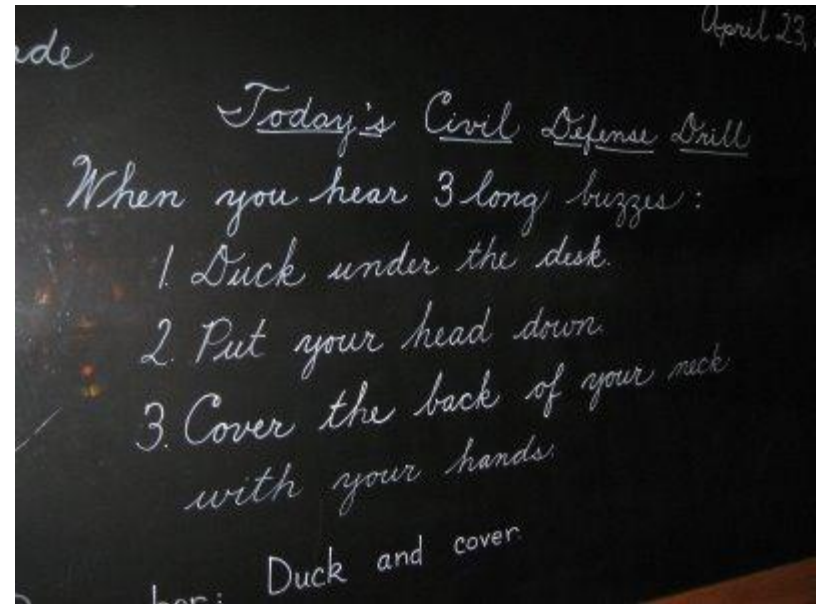 April 23,
Today's Civil Defense Drill
When you hear 3 long buzzes:
1. Duck under the desk.
2. Put your head down.
3. Cover the back of your neck
with your hands.
Duck and cover.